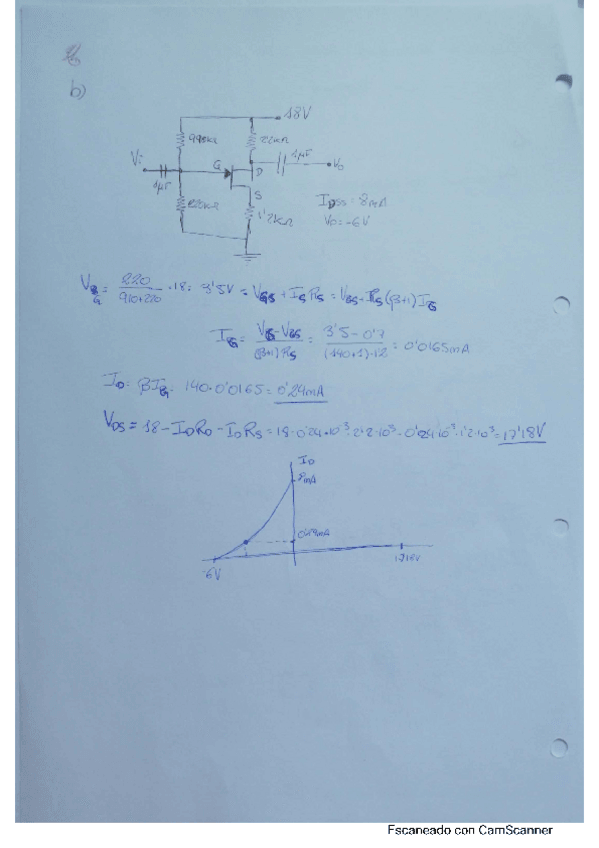 b)
18V
2'2KΩ
1µF
Vi
G
D
Vo
1µF
S
220KΩ
1'2KΩ
IDSS = 8mA
Vp = -6V
VG = 220/(910+220) · 18 = 3'5V = VGS + IS RS = VGS + RS(β+1) IG
IG = (VG - VGS)/((β+1)RS) = (3'5 - 0'7)/((140+1)·1'2) = 0'0165mA
ID = βIG = 140·0'0165 = 0'24mA
VDS = 18 - ID RD - ID RS = 18 - 0'24·10⁻³·2'2·10³ - 0'24·10⁻³·1'2·10³ = 17'18V
ID
8mA
0'24mA
-6V
17'18V
Escaneado con CamScanner